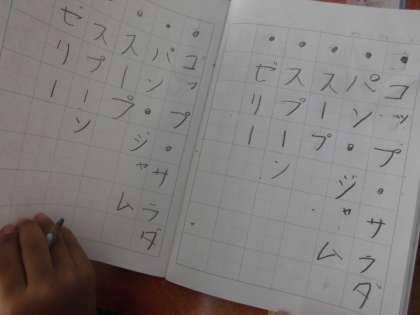 ・コップ・サラダ
・パン・ジャム
・スープ
・スプーン
・ゼリー
・コップ・サラダ
・パン・ジャム
・スープ
・スプーン
ゼリー